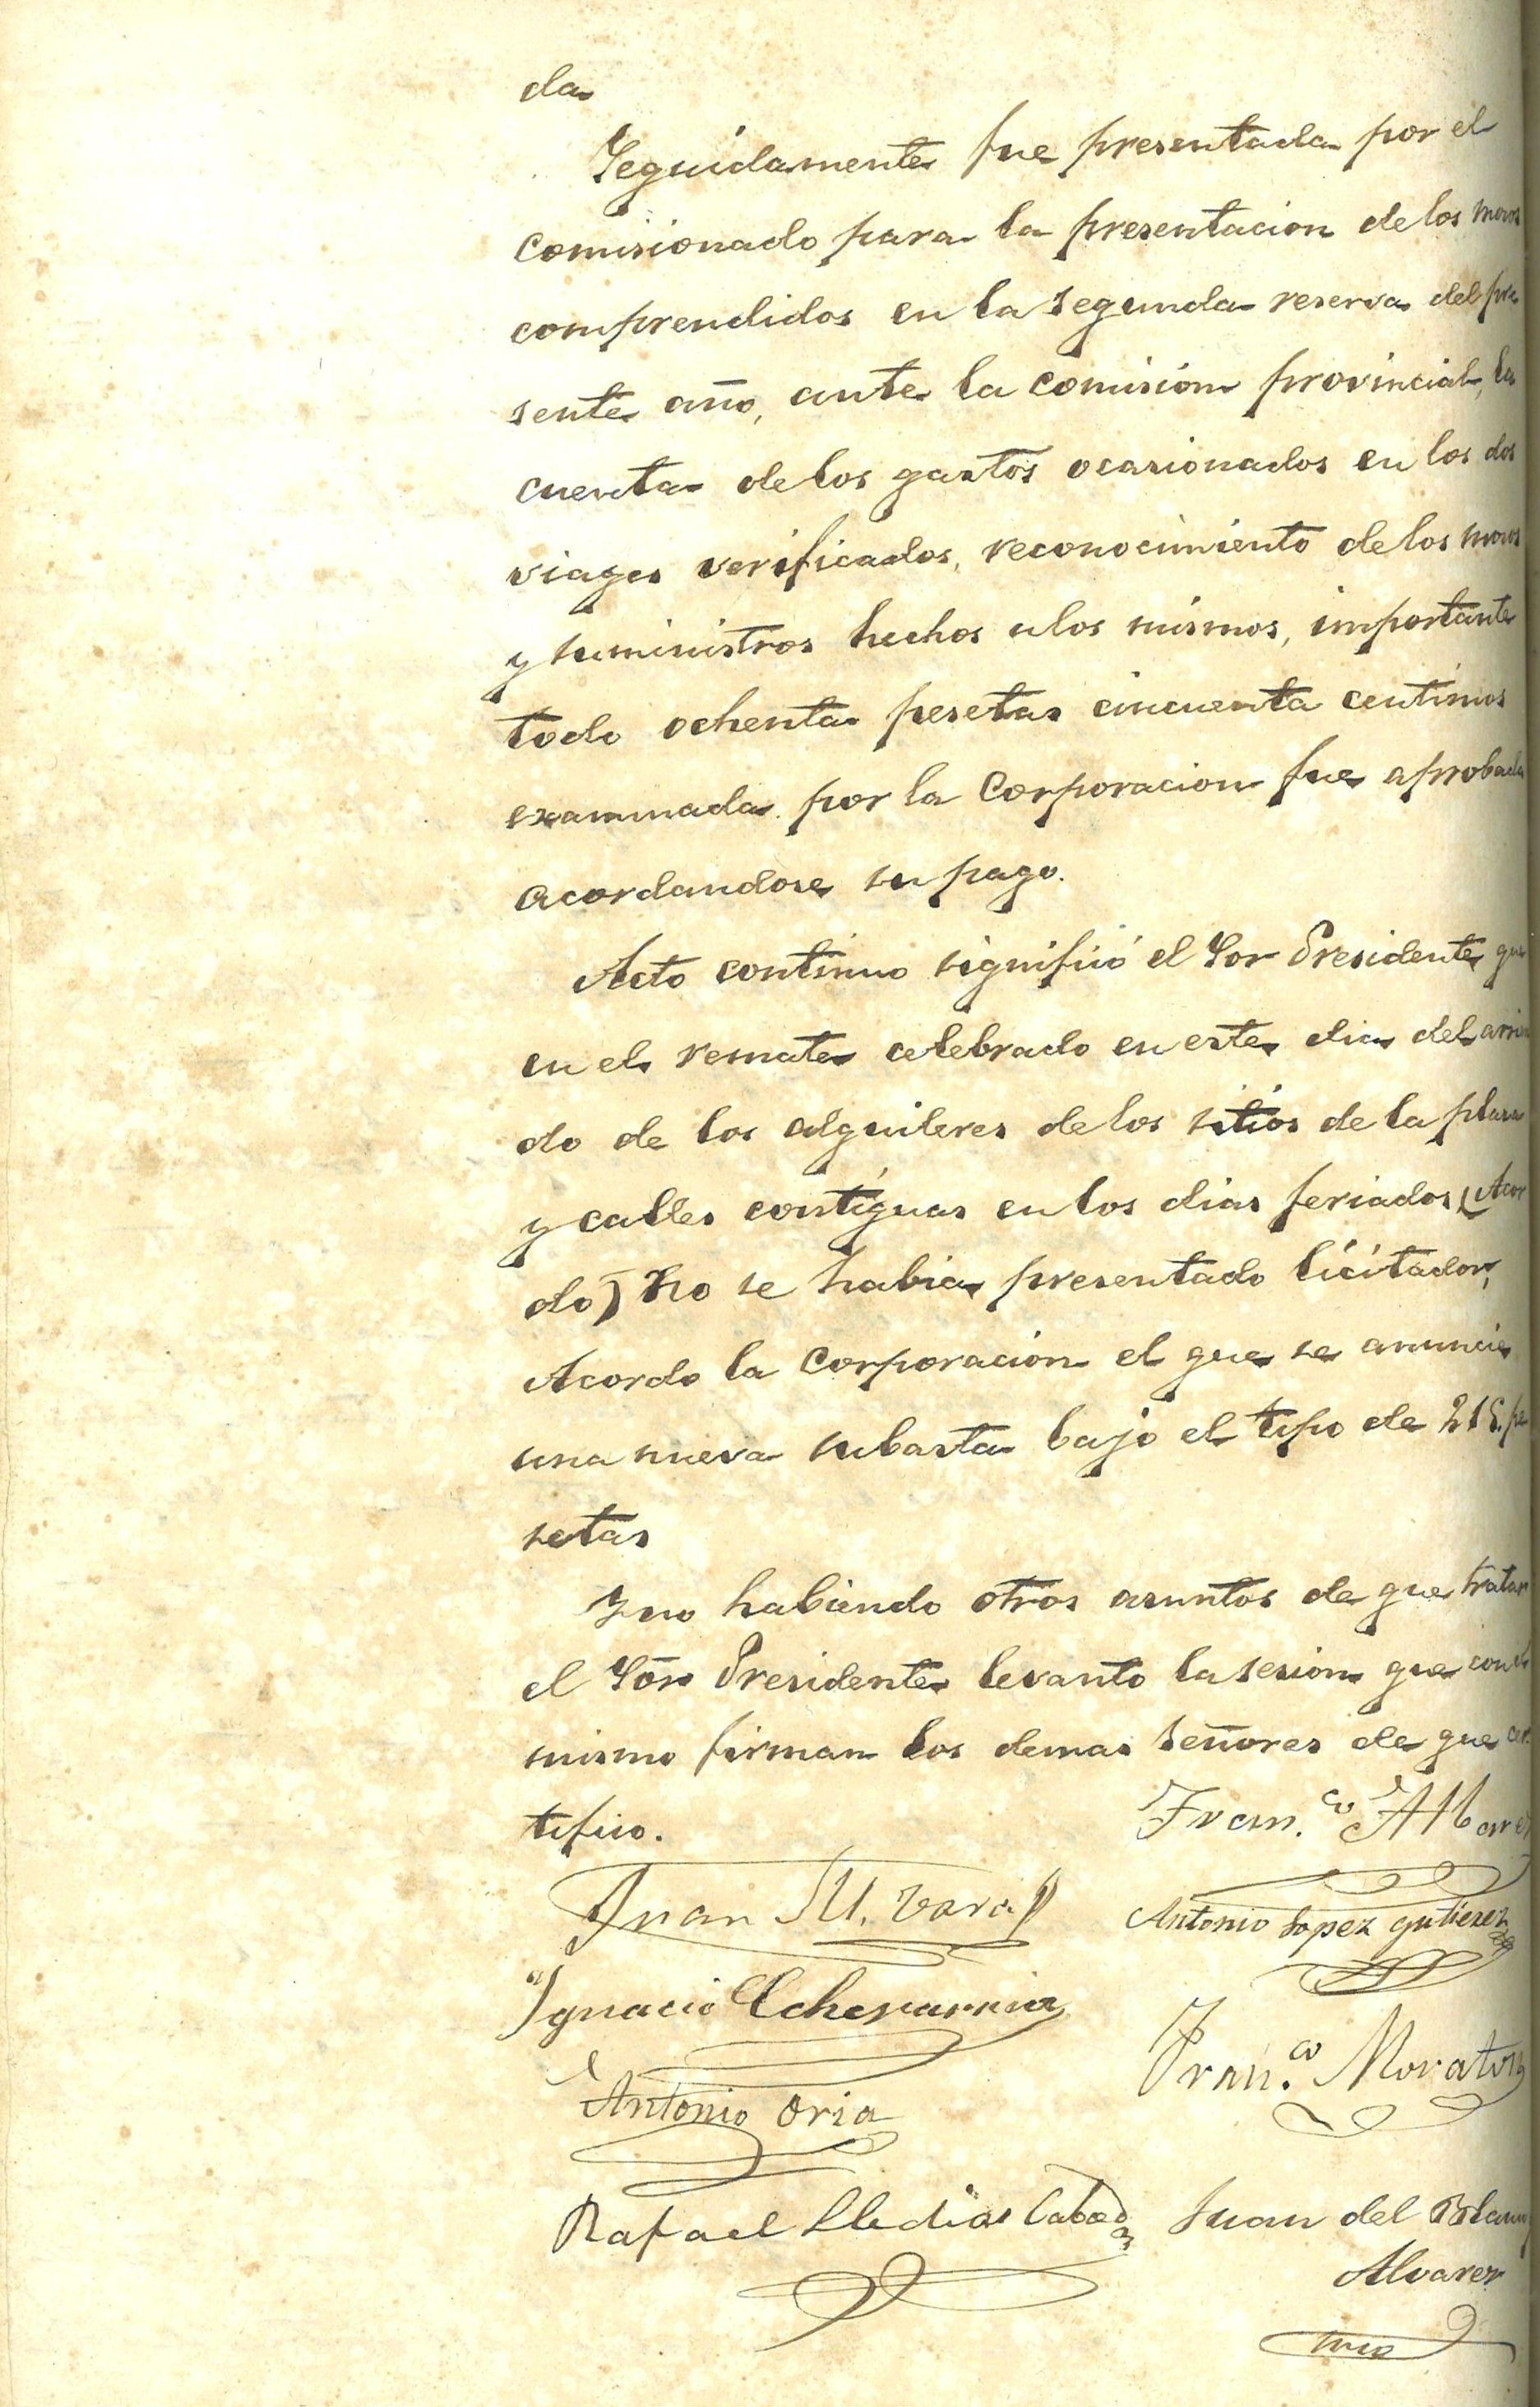 da
Seguidamente fue presentada por el
comisionado para la presentacion de los mozos
comprendidos en la segunda reserva del pre
sente año, ante la comisión provincial, la
cuenta de los gastos ocasionados en los dos
viages verificados, reconocimiento de los mozos
y suministros hechos a los mismos, importante
todo ochenta pesetas cincuenta centimos
examinada por la Corporacion fue aprobada
acordandose su pago.
Acto continuo significó el Sor Presidente que
en el remate celebrado en este dia del arrien
do de los alquileres de los sitios de la plaza
y calles contiguas en los dias feriados, (Acor
do) no se habia presentado licitador,
Acordo la Corporación el que se anuncie
una nueva subasta bajo el tipo de 215. pe
setas
Y no habiendo otros asuntos de que tratar
el Sōr Presidente levanto la sesion que con el
mismo firman los demas señores de que cer
tifico.
Fran.co Albarez
Juan M. Vara
Antonio Lopez Gutierez
Ignacio Echevarria
Fran.co Morato
Antonio Oria
Rafael Lledias Juan del Blanco
Alvarez